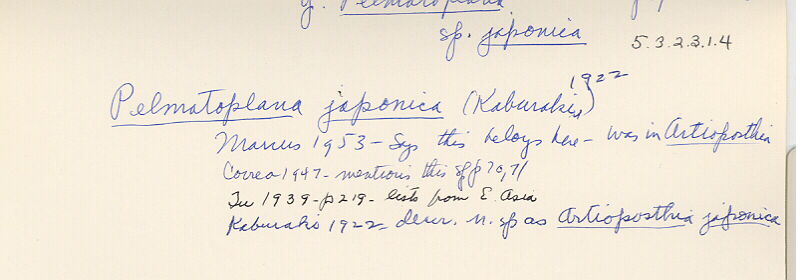 g. Pelmatoplana
sp. japonica
5.3.2.3.1.4
Pelmatoplana japonica (Kaburaki, 1922)
Marcus 1953 - Says this belongs here - was in Artioposthia
Correa 1947 - mentions this sp p 70, 71
Tu 1939 - p 219 - lists from E. Asia
Kaburaki 1922 - descr. n. sp as Artioposthia japonica